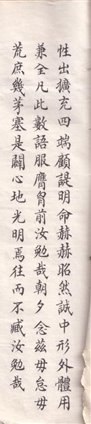 性出擴充四端顧諟明命赫赫昭然誠中形外體用
兼全凡此數語服膺胷前汝勉哉朝夕念兹毋怠毋
荒庶幾茅塞是闢心地光明焉往而不臧汝勉哉